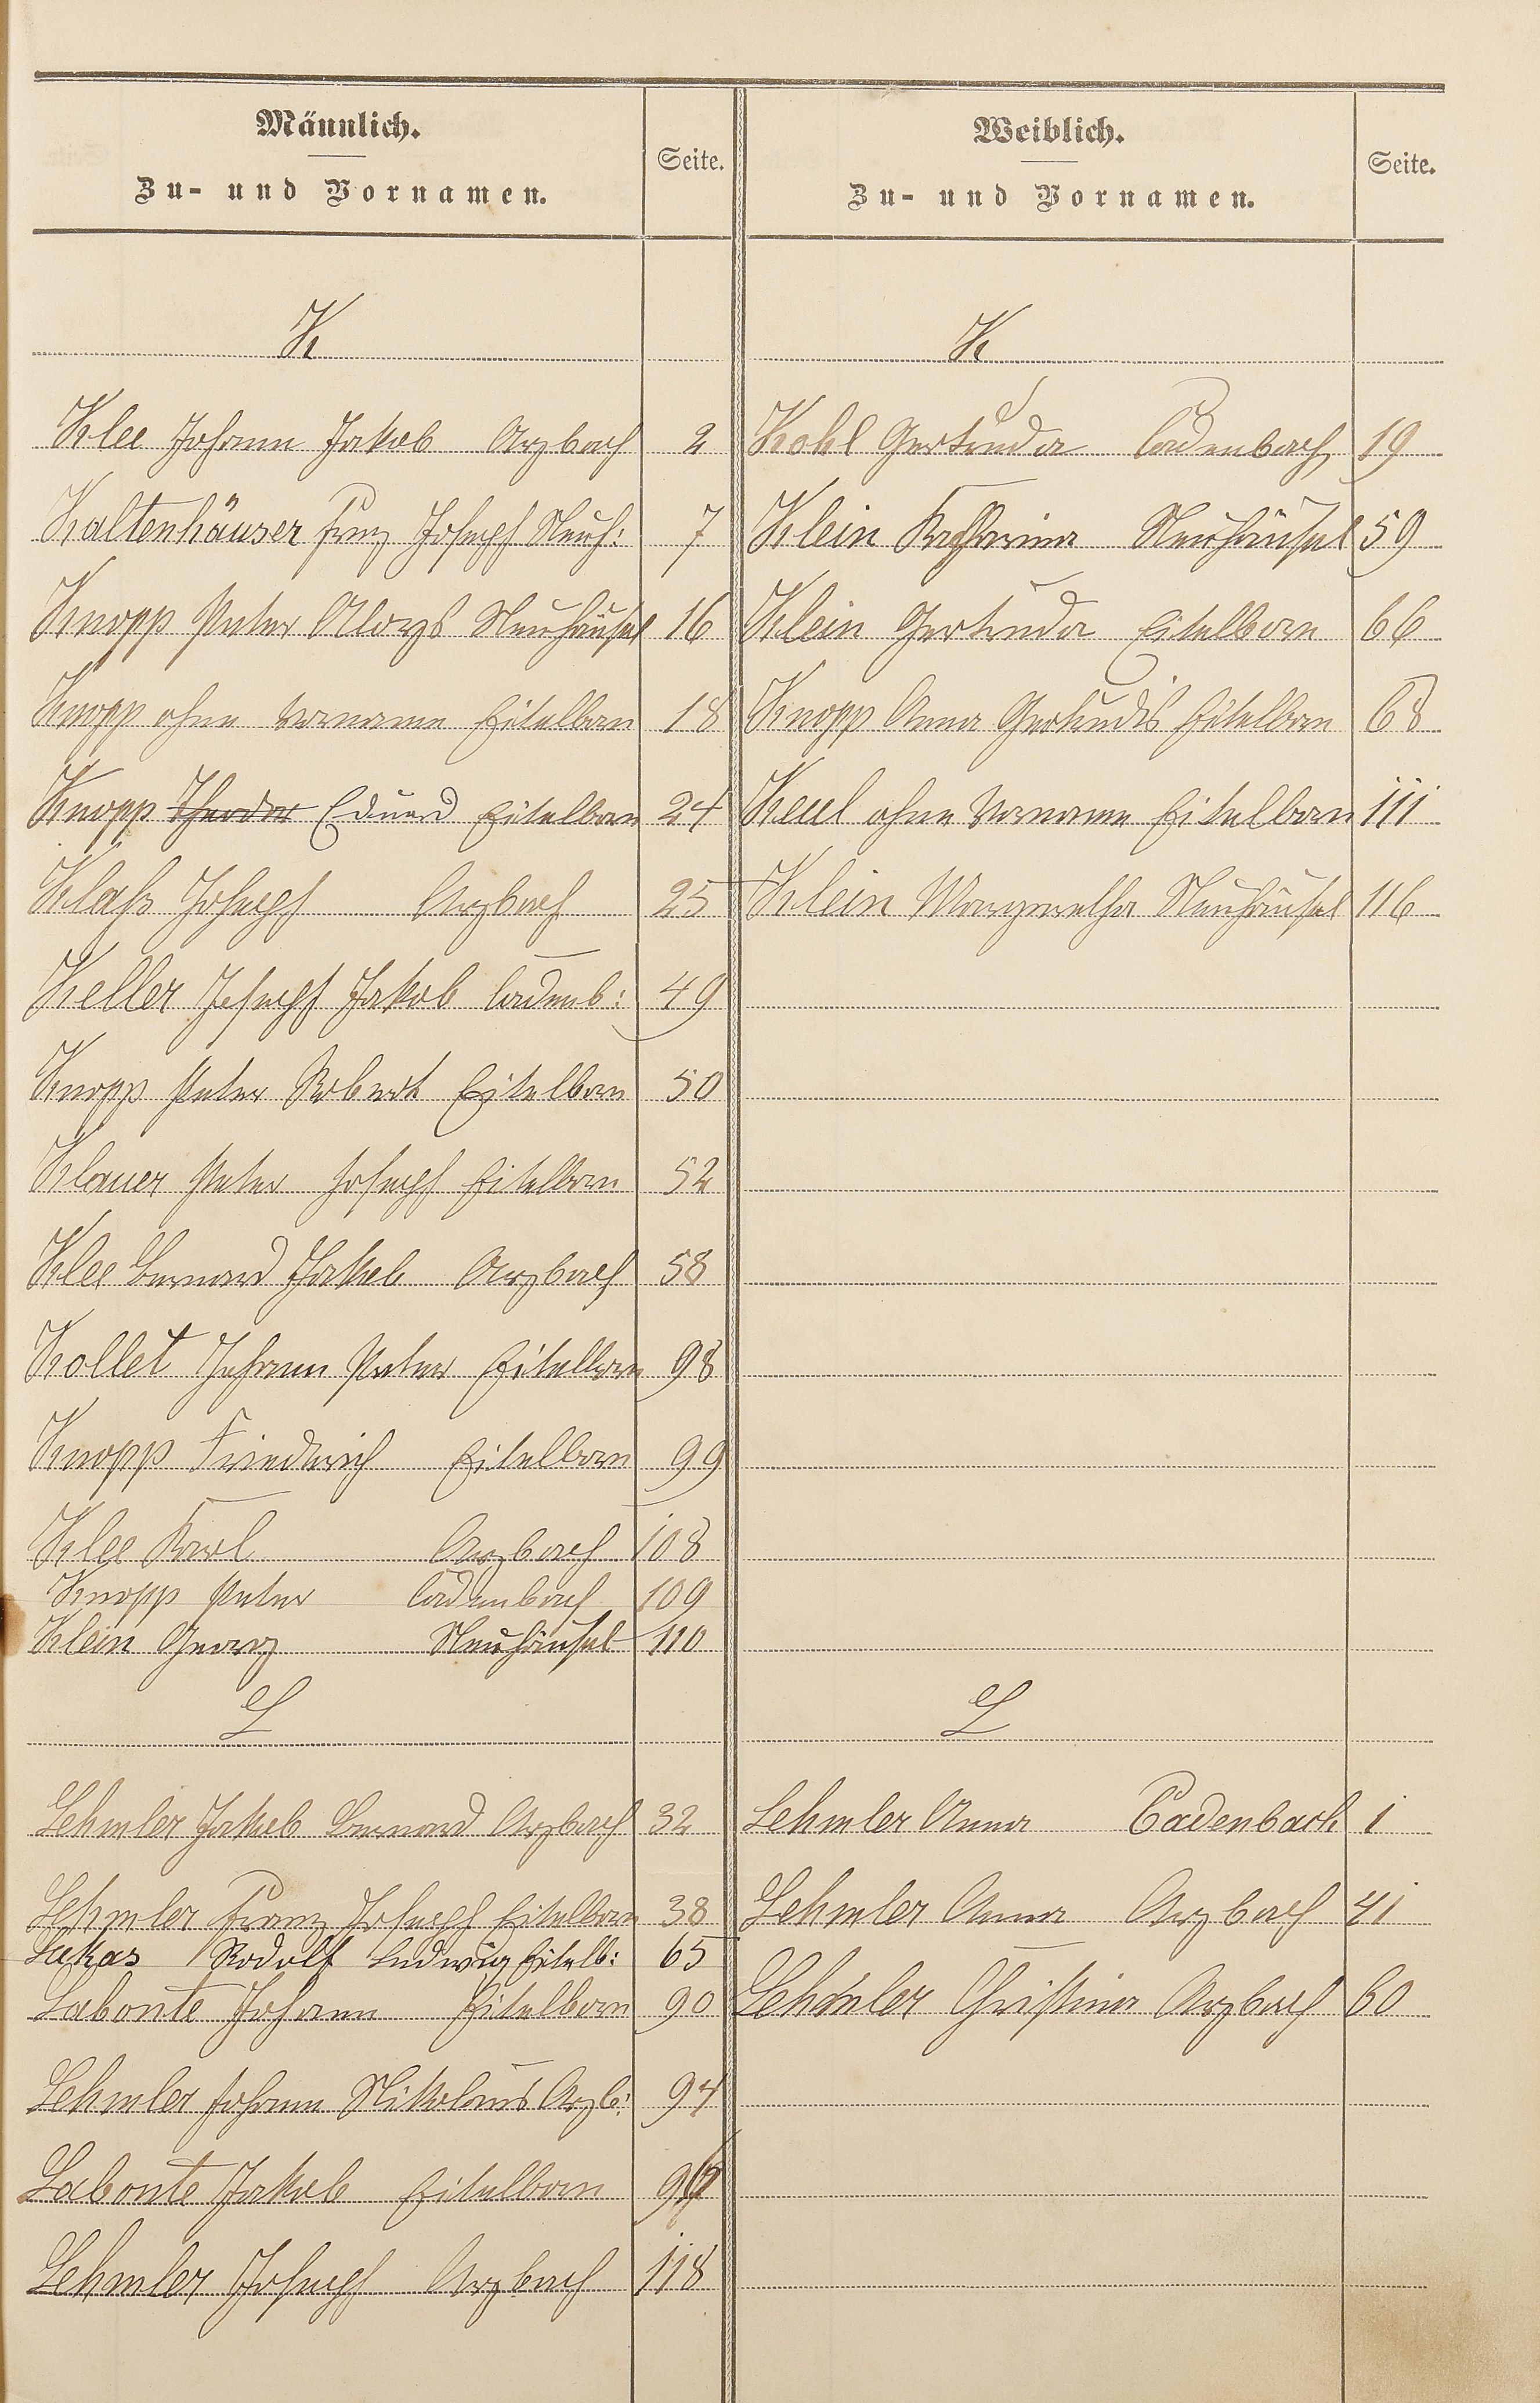 Männlich.
Zu- und Vornamen.
Seite.
K
Klee Johann Jakob Arzbach 2
Kaltenhäuser Franz Joseph Neuh: 7
Knopp Peter Aloys Neuhäusel 16
Knopp ohne Vorname Eitelborn 18
Knopp Theodor Eduard Eitelborn 24
Klaß Joseph Arzbach 25
Keller Joseph Jakob Cadenb: 49
Knopp Peter Robert Eitelborn 50
Klauer Peter Joseph Eitelborn 52
Klee Bernard Jakob Arzbach 58
Kollet Johann Peter Eitelborn 98
Knopp Friedrich Eitelborn 99
Klee Karl Arzbach 108
Knopp Peter Cadenbach 109
Klein Georg Neuhäusel 110
L
Lehmler Jakob Bernard Arzbach 32
Lehmler Franz Joseph Eitelborn 38
Lukas Rodolf Ludwig Eitelb: 65
Labonte Johann Eitelborn 90
Lehmler Johann Nikolaus Arzb: 94
Labonte Jakob Eitelborn
Lehmler Joseph Arzbach 118
Weiblich.
Zu- und Vornamen.
Seite.
K
Kohl Gertruda Cadenbach 19
Klein Katharina Neuhäusel 59
Klein Gertruda Eitelborn 66
Knopp Anna Gertrudis Eitelborn 68
Keul ohne Vorname Eitelborn 111
Klein Margaretha Neuhäusel 116
L
Lehmler Anna Cadenbach 1
Lehmler Anna Arzbach 41
Lehmler Christina Arzbach 60